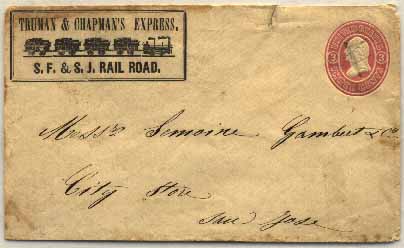 TRUMAN & CHAPMAN'S EXPRESS,
S. F. & S. J. RAIL ROAD.
3 3
Messrs Lemoine Gambert & Co
City Store
San Jose